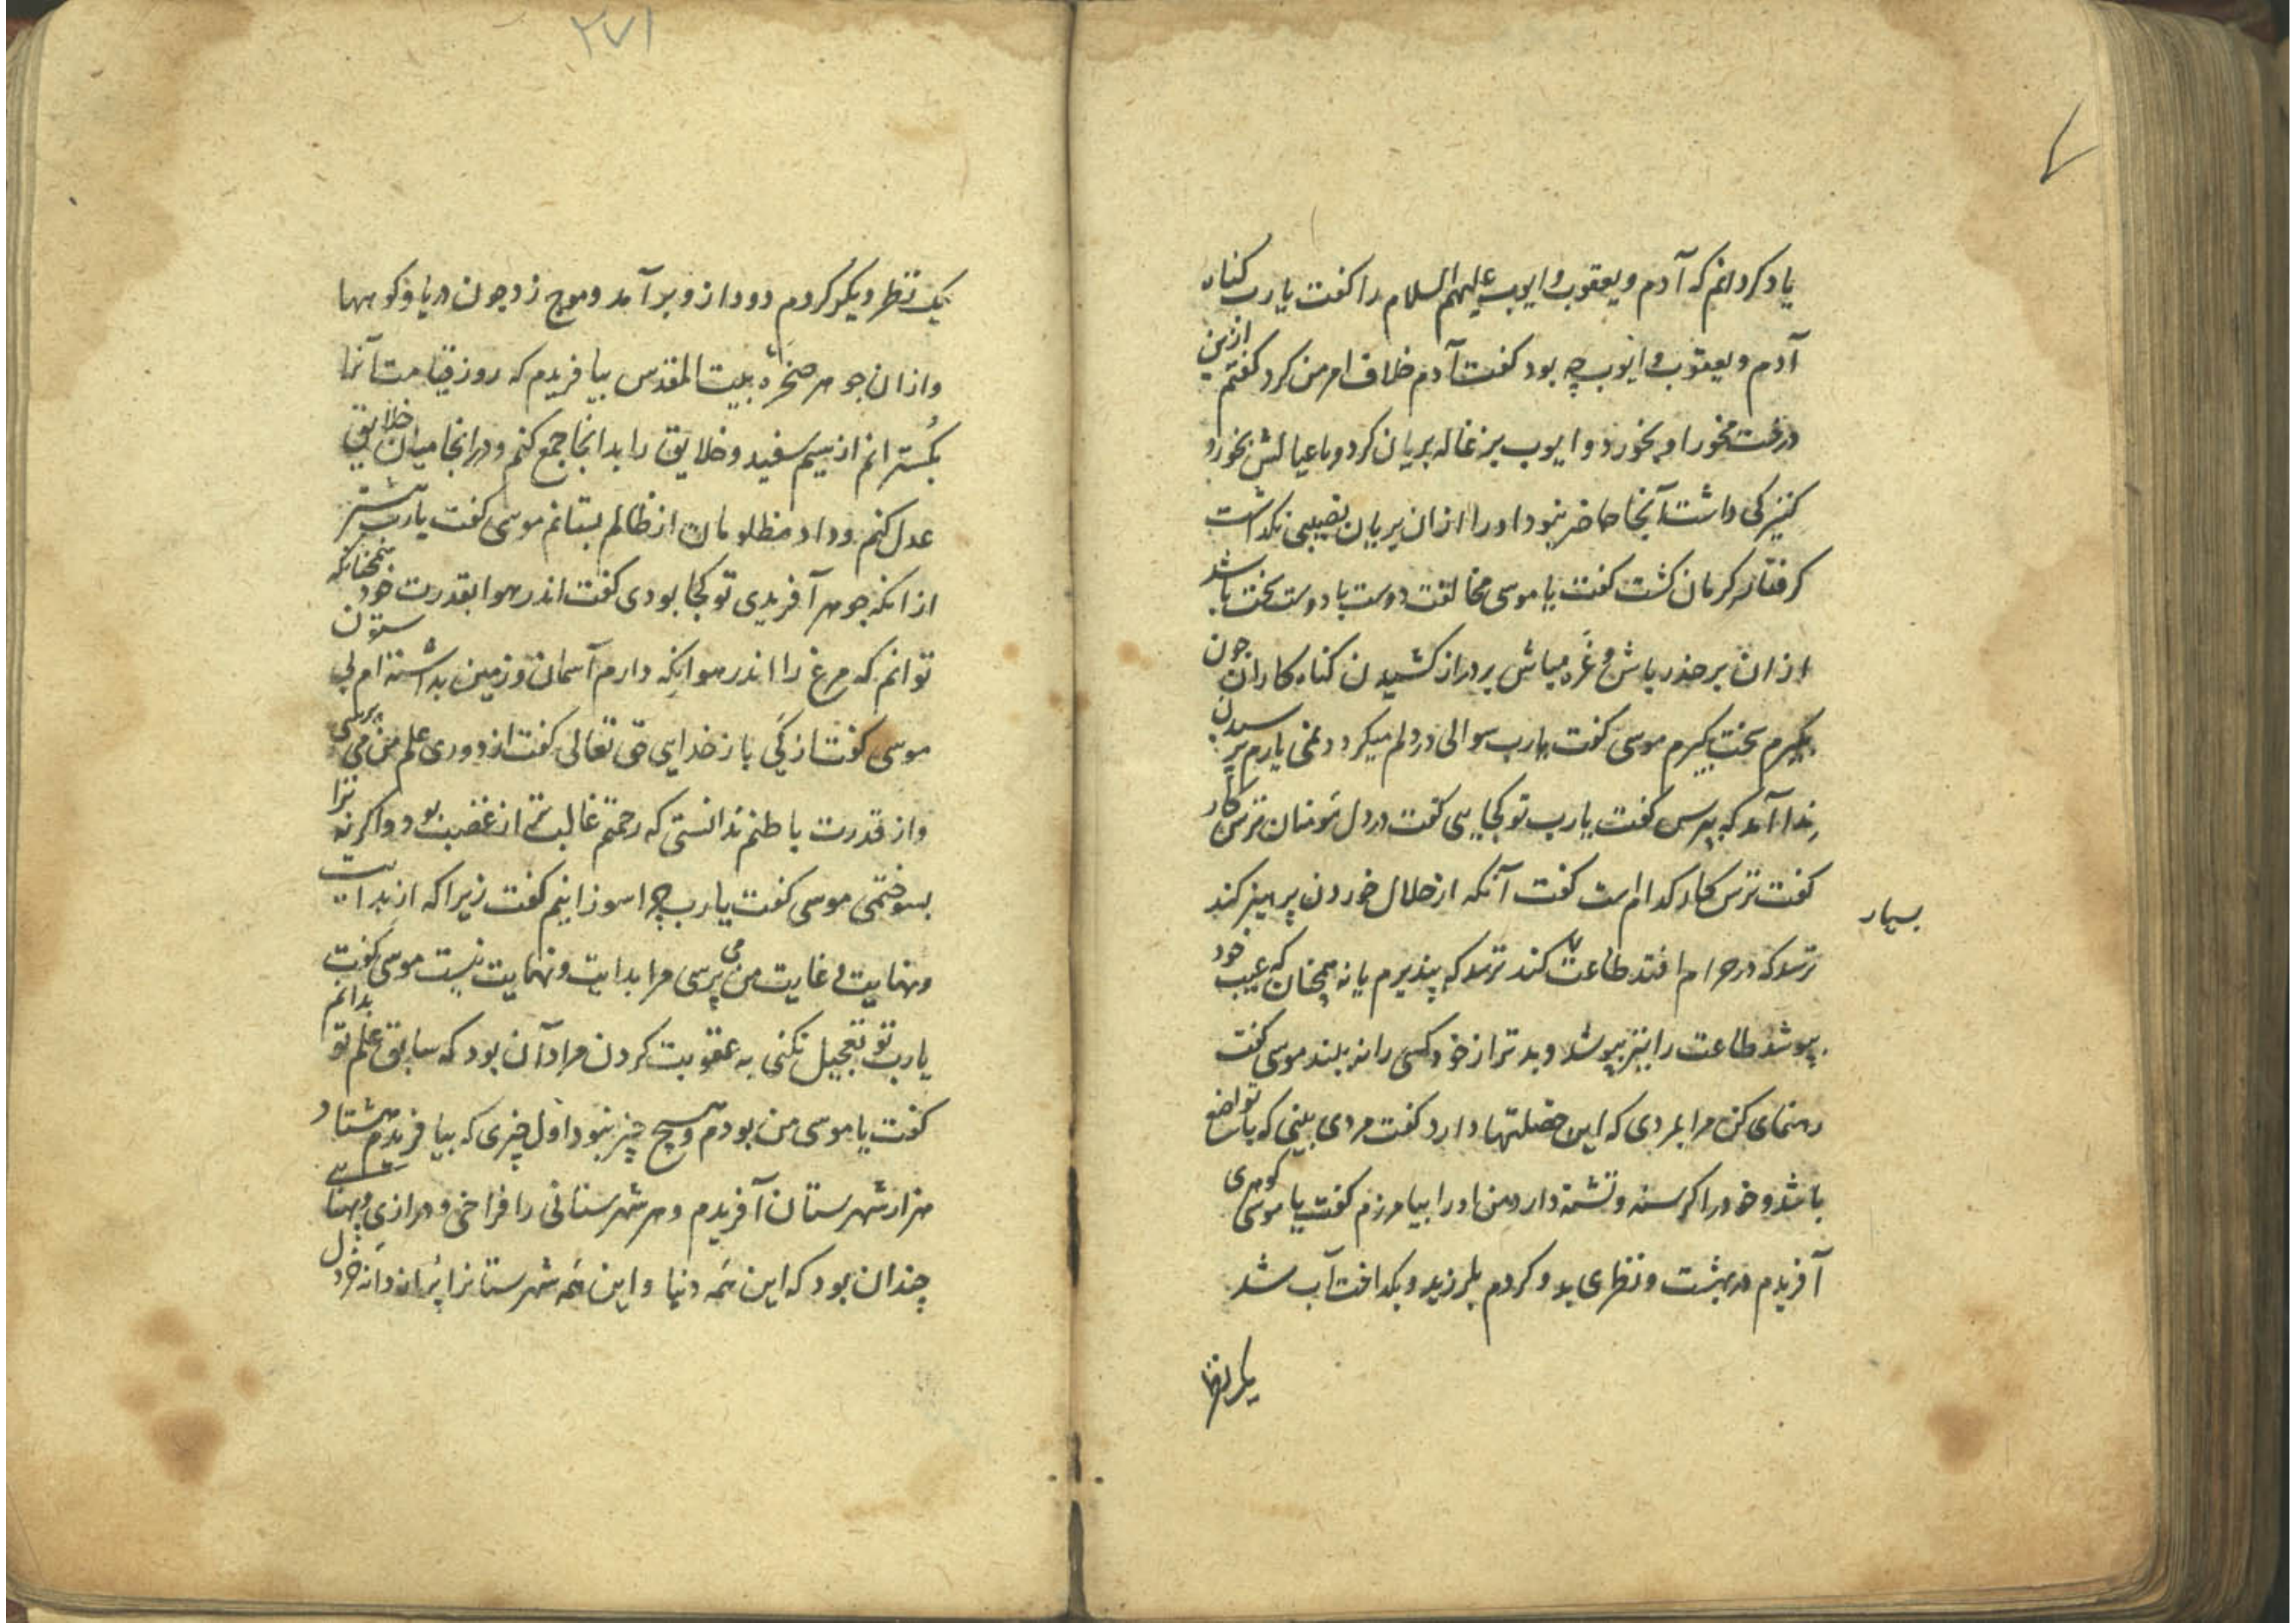 یاد کردانم که آدم و یعقوب و ایوب علیهم السلام را کفت یا رب کناه
آدم و یعقوب و ایوب چه بود کفت آدم خلاف امر من کرد کفتم ازین
درخت مخور او بخورد و ایوب بزغاله بریان کرد و با عیالش بخورد
کنیزکی داشت آنجا حاضر نبود او را ازان بریان نصیبی نکداشت
کرفتار کرمان کشت کفت یا موسی مخالفت دوست با دوست سخت باشد
ازان بر حذر باش و غره مباش بر دراز کشیدن کناه کاران چون
بکیرم سخت بکیرم موسی کفت یا رب سوالی در دلم میکردد نمی یارم پرسیدن
ندا آمد که بپرس کفت یا رب تو کجایی کفت در دل مومنان ترس کار
کفت ترس کار کدام است کفت آنکه از حلال خوردن پرهیز کند
ترسد که در حرام افتد طاعتها کند ترسد که پذیرم یا نه همچنان که عیب خود
بسیار
بپوشد طاعت را نیز بپوشد و بدتر از خود کسی را نه بیند موسی کفت
رهنمای کن مرا بمردی که این خصلتها دارد کفت مردی بینی که با تواضع
باشد و خود را کرسنه و تشنه دارد من او را بیامرزم کفت یا موسی کوهری
آفریدم در بهشت و نظری بدو کردم بلرزید و بکداخت آب شد
یک نظر
۲۷۱
یک نظر دیکر کردم دود ازو برآمد و موج زد چون دریا و کوهها
و ازان جوهر صخرهٔ بیت المقدس بیافریدم که روز قیامت آنرا
بکسترانم از سیم سفید و خلایق را بدانجا جمع کنم و در انجا میان خلایق
عدل کنم و داد مظلومان از ظالم بستانم موسی کفت یا رب پیشتر
از انکه جوهر آفریدی تو کجا بودی کفت اندر هوا بقدرت خود همچنانکه
توانم که مرغ را اندر هوا نکه دارم آسمان و زمین بداشته ام بی ستون
موسی کفت از کی باز خدایی حق تعالی کفت از دوری علم من می پرسی
و از قدرت باطنم ندانستی که رحمتم غالبست از غضب بود و اکر نه ترا
بسوختمی موسی کفت یا رب چرا سوزانیم کفت زیرا که از بدایت
و نهایت و غایت من می پرسی مرا بدایت و نهایت نیست موسی کفت
یا رب تو تعجیل نکنی به عقوبت کردن مراد آن بود که سابق علم تو بدانم
کفت یا موسی من بودم و هیچ چیز نبود اول چیزی که بیافریدم هشتاد
هزار شهرستان آفریدم و هر شهرستانی را فراخی و درازی و پهنایی
چندان بود که این همه دنیا و این همه شهرستانرا پر از دانه خردل